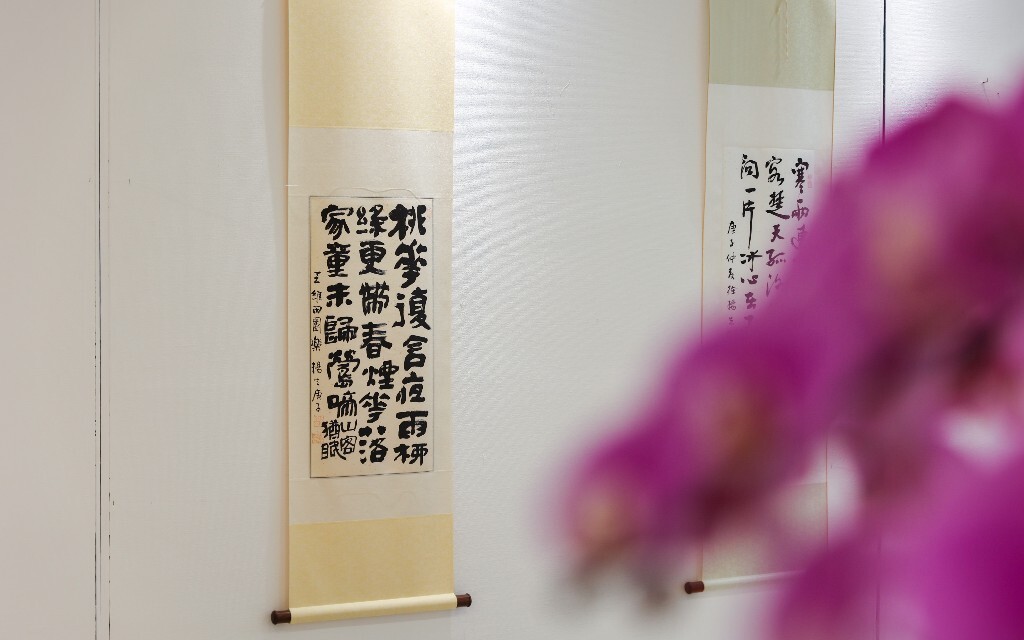 桃花復含宿雨柳
綠更帶春煙花落
家童未歸鶯啼山客猶眠
王維田園樂 楊 庚子
寒雨連
客楚天孤洛
问一片冰心在
庚子仲夏徐